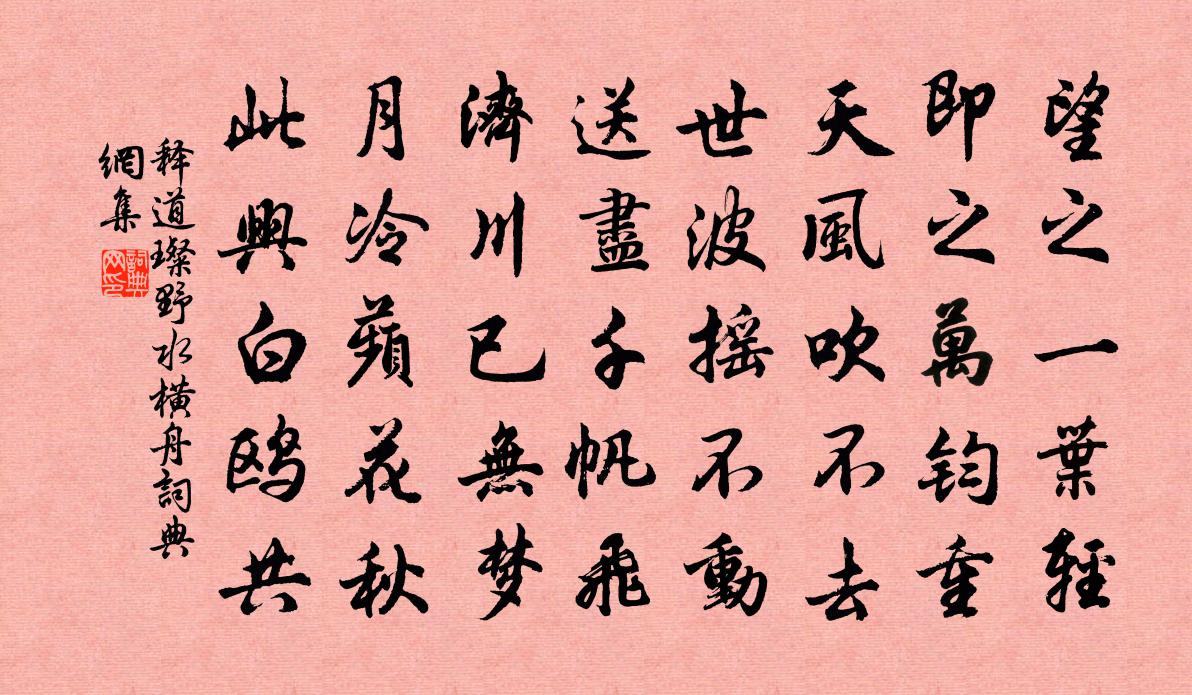 望之一葉輕
即之萬鈞重
天風吹不去
世波摇不動
送盡千帆飛
濟川已無梦
月冷蘋花秋
此興白鸥共
释道璨野水横舟詞典
網集
詞典网印